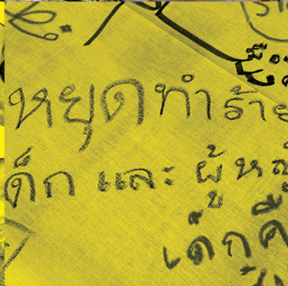 หยุดทำร้าย
เด็ก และ ผู้หญิ
เด็กคื